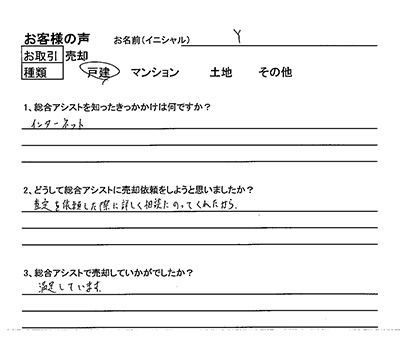 お客様の声 お名前(イニシャル) Y
お取引 売却
種類 戸建 マンション 土地 その他
1、総合アシストを知ったきっかけは何ですか？
インターネット
2、どうして総合アシストに売却依頼をしようと思いましたか？
査定を依頼した際に詳しく相談にのってくれたから。
3、総合アシストで売却していかがでしたか？
満足しています。